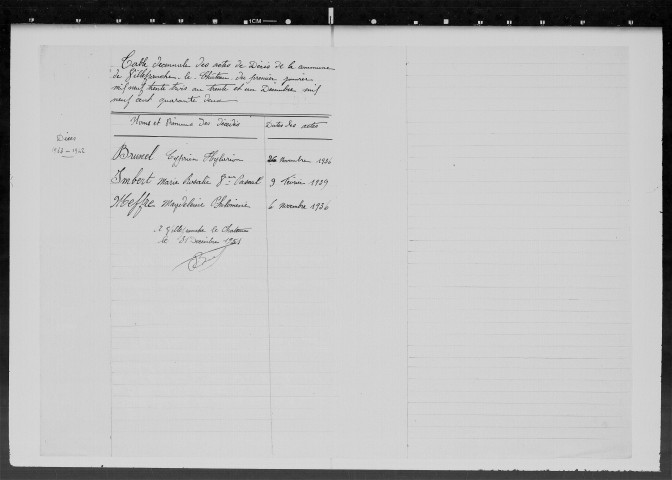 1CM
Table décennale des actes de Décès de la commune
de Villefranche-le-Château du premier janvier
mil neuf trente trois au trente et un Décembre mil
neuf cent quarante deux
Noms et Prénoms Des Décédés Dates des actes
Décès
1933-1942
Brunel Cyprien Hylarion 26 novembre 1934
Imbert Marie Rosalie 9 février 1939
Meffre Magdeleine Philomène 6 novembre 1936
à Villefranche le Château
le 31 Décembre